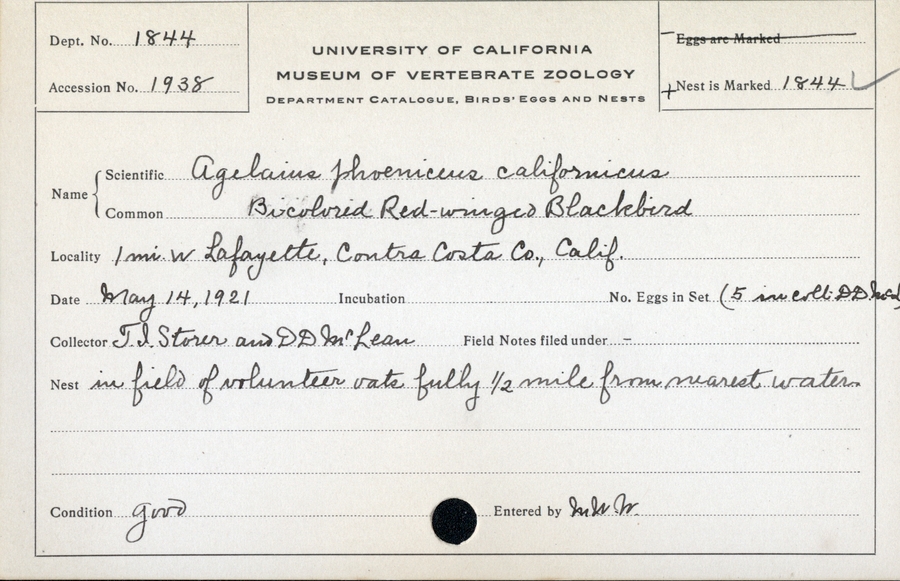 Dept. No. 1844
Accession No. 1938
UNIVERSITY OF CALIFORNIA
MUSEUM OF VERTEBRATE ZOOLOGY
DEPARTMENT CATALOGUE, BIRDS' EGGS AND NESTS
Eggs are Marked
Nest is Marked 1844
Name
Scientific Agelaius phoeniceus californicus
Common Bicolored Red-winged Blackbird
Locality 1 mi. W Lafayette, Contra Costa Co., Calif.
Date May 14, 1921 Incubation No. Eggs in Set (5 in coll. DD
Collector T.I. Storer and DD McLean Field Notes filed under -
Nest in field of volunteer oats fully 1/2 mile from nearest water.
Condition good Entered by